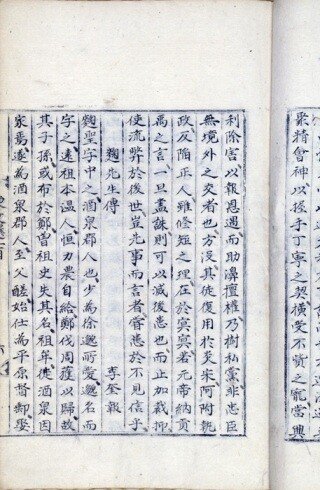 聚精會神以握手丁寧之契橫受不貲之寵當興
利除害以報恩遇而助漙擅權乃樹私黨非忠臣
無境外之交者也方没其徒復用於炎宋阿附執
政反陷正人雖修短之理在於冥冥若元帝納貢
禹之言一旦盡誅則可以減後患也而止加裁抑
使流弊於後世豈先事而言者嘗患於不見信乎
麴先生傳 李奎報
麴聖字中之酒泉郡人也少為徐邈所愛邈名而
字之遠祖本温人恒力農自給鄭伐周獲以歸故
其子孫或布於鄭曾祖史失其名祖牟徙酒泉因
家焉遂為酒泉郡人至父醝始仕為平原督郵娶